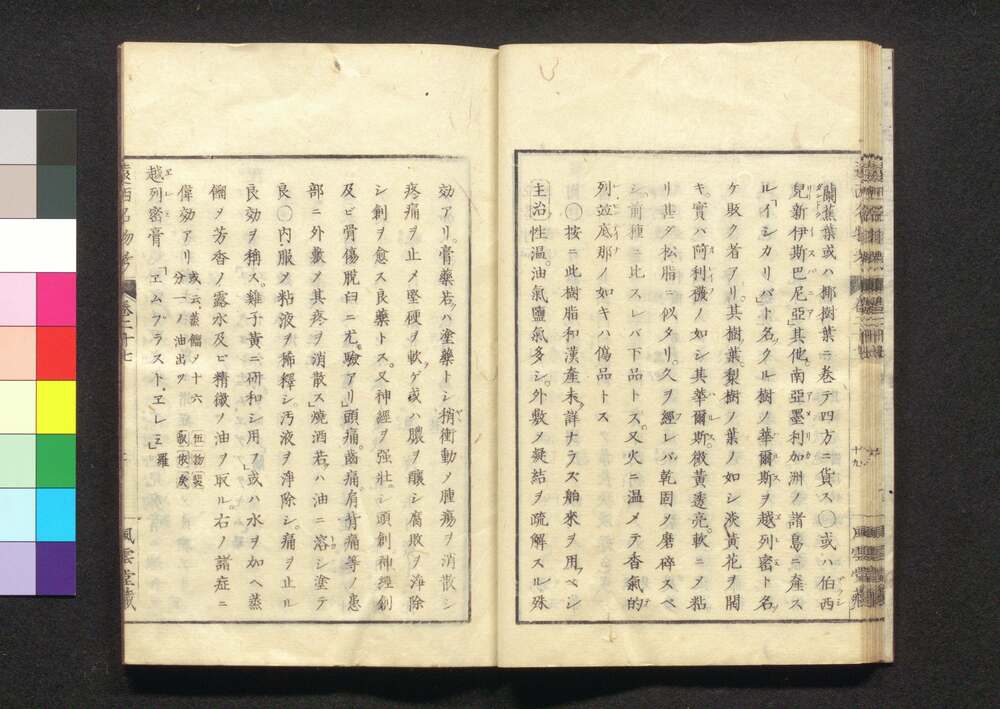 蘭蕉葉或ハ椰樹葉ニ巻テ四方ニ貨ス○或ハ伯西
兒新伊斯巴尼亞其他南亞墨利加洲ノ諸島ニ産ス
ル「イシカリバ」ト名クル樹ノ華爾斯ヲ越列密ト名
ケ敗ク者アリ。其樹葉梨樹ノ葉ノ如シ淡黄花ヲ開
キ。實ハ阿利襪ノ如シ其華爾斯。微黄透亮。軟ニメ粘
リ甚タ松脂ニ似タリ。久ヲ經レバ乾固ク磨碎スベ
シ。前種ニ比スレバ下品トス。又火ニ温メテ香氣的
列並底那ノ如キハ偽品トス
○按ニ此樹脂和漢産未詳ナラズ舶來ヲ用ベシ
主治 性温。油氣鹽氣多シ。外敷メ凝結ヲ疏解スル殊
十九
風雲堂藏
効アリ。膏藥若ハ塗藥トシ梢衝動ノ腫瘍ヲ消散シ
疼痛ヲ止メ堅硬ヲ軟ゲ或ハ膿ヲ釀シ腐敗ヲ淨除
シ創ヲ愈ス良藥トス。又神經ヲ強壯。シ頭創神經創
及ビ骨傷脱臼ニ尤驗アリ」頭痛。齒痛肩背痛等ノ患
部ニ外敷メ其疼ヲ消散ス」燒酒若ハ油ニ溶シ塗テ
良○内服メ粘液ヲ稀釋シ。汚液ヲ淨除シ。痛ヲ止ル
良効ヲ稱ス。雞子黄ニ研和シ用フ」或ハ水ヲ加ヘ蒸
餾ヲ芳香ノ露水及ビ精微ノ油ヲ取ル。右ノ諸症ニ
偉効アリ 或云、蒸餾メ十六
分一ノ油出ヲ
越列密膏 「ヱムプラスト、ヱレミ」羅
遠西名物考 卷二十七
風雲堂藏